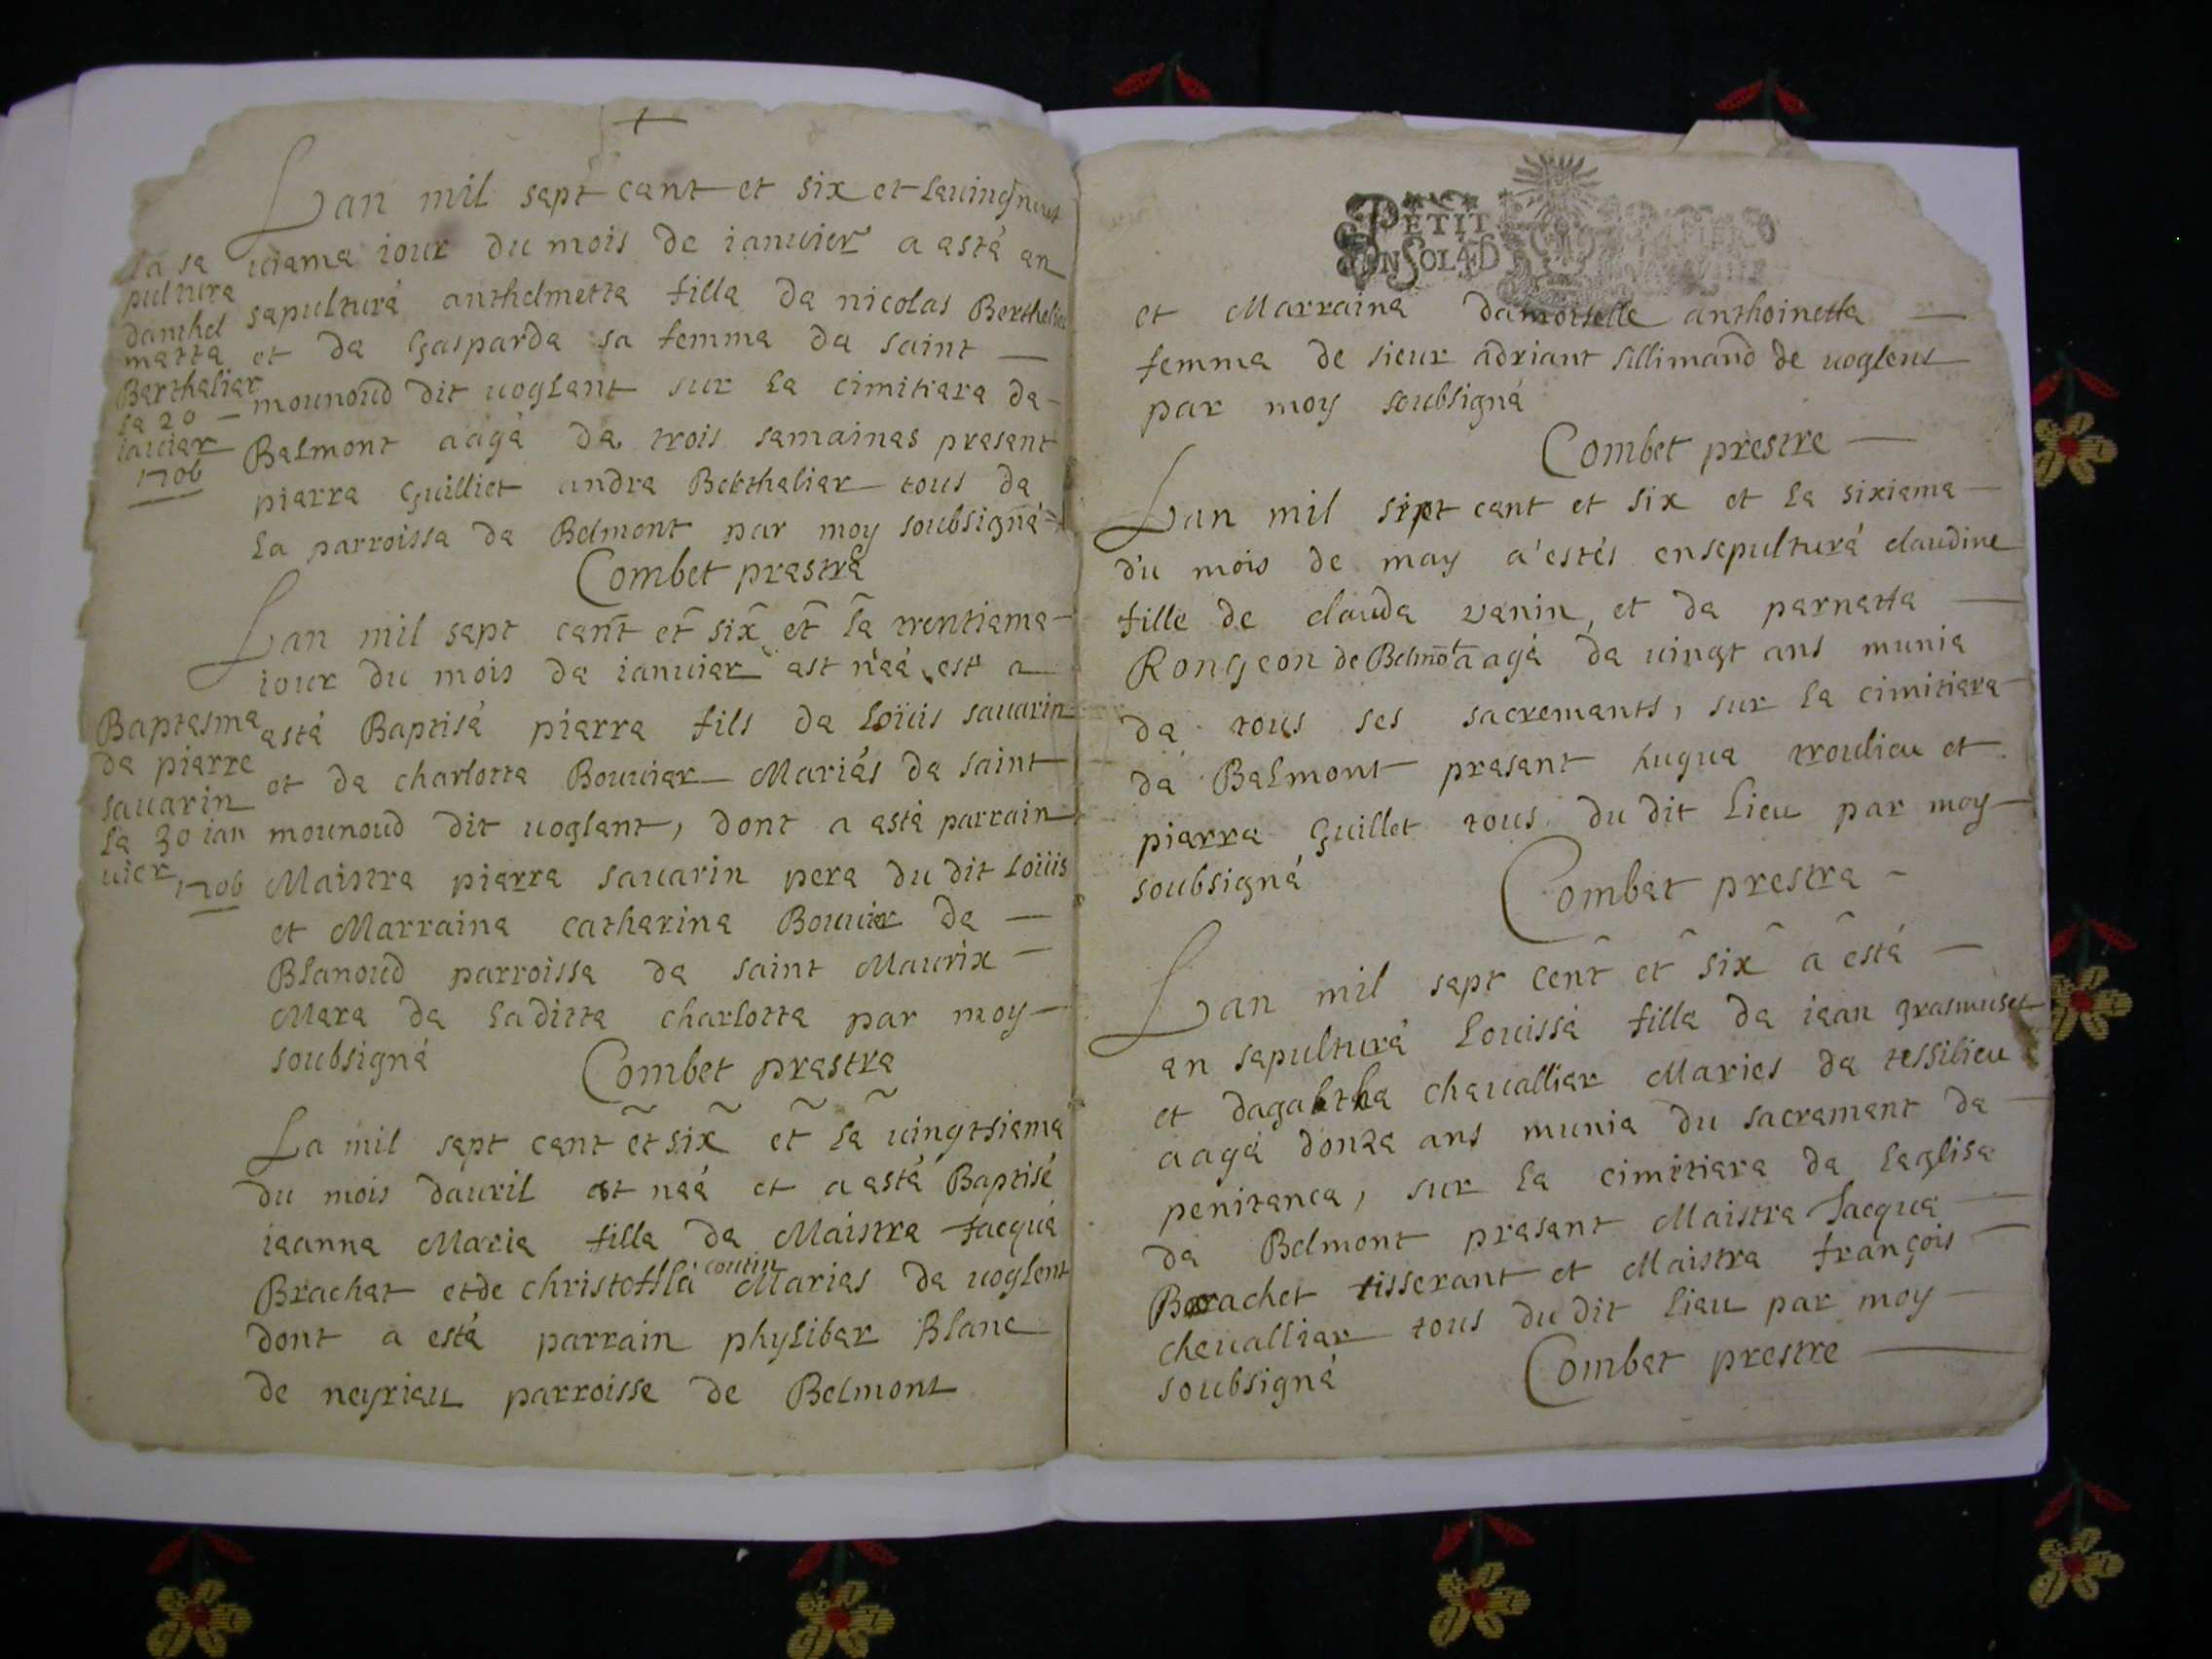 Lan mil sapt cant et six et lauingt
uiama iour du mois de ianuier a astá an
sapulturá anthelmetta filla da nicolas Berthelier
et da Gasparda sa femma da saint
mounoud dit uoglant sur la cimitiara da
Balmont aagá da trois samainas prasant
piarra Guilliet andra Berthaliar tous da
la parroissa da Belmont par moy soubsigná
Combet prastra
la sa
pultura
danthel
matta
Barthaliar
la 20
iauiar
1706
Lan mil sapt cant et six et la trentiama
iour du mois da ianuiar ast náá est a
astá Baptisá piarra fils da Loüis sauarin
et da charlotta Bouuiar Mariás da saint
mounoud dit uoglant, dont a astá parrain
Maistra piarra sauarin pera du dit Loüis
et Marraina catharina Bouuier da
Blanoud parroissa da saint Maurix
Mara da laditta charlotta par moy
soubsigná
Combet prastra
Baptasma
da piarre
sauarin
la 30 ian
uier 1706
La mil sapt cant et six et la uingtsiama
du mois dauril est náá et a astá Baptisé
ianna Maria filla da Maistra Jacqua
Brachat et de christofla coutin Marias da uoglent
dont a está parrain phylibar Blanc
de neyriau parroisse de Belmont
PETIT
et Marraina damoiselle anthoinetta
femma de sieur adriant sillimand de uoglens
par moy soubsigná
Combet prestre
Lan mil sept cant et six et la sixiama
du mois de may a estés ensepulturá claudine
fille de clauda vanin et da parnatta
Rongeon de Belmōt aagá da uingt ans munia
da tous ses sacremants, sur la cimitiara
da Balmont prasant huqua troulieu et
piarra Guillet tous du dit lieu par moy
soubsigná
Combat prestra
Lan mil sapt cent et six a está
an sapulturá Louissá filla da iaan grasmuset
et dagabtha chaualliar Maries da tessilieu
aagá donza ans munia du sacramant da
penitanca, sur la cimitiara da laglisa
da Belmont prasant Maistra Jacqua
Brachet tisserant et Maistra françois
cheualliar tous du dit liau par moy
soubsigná
Combat prestre